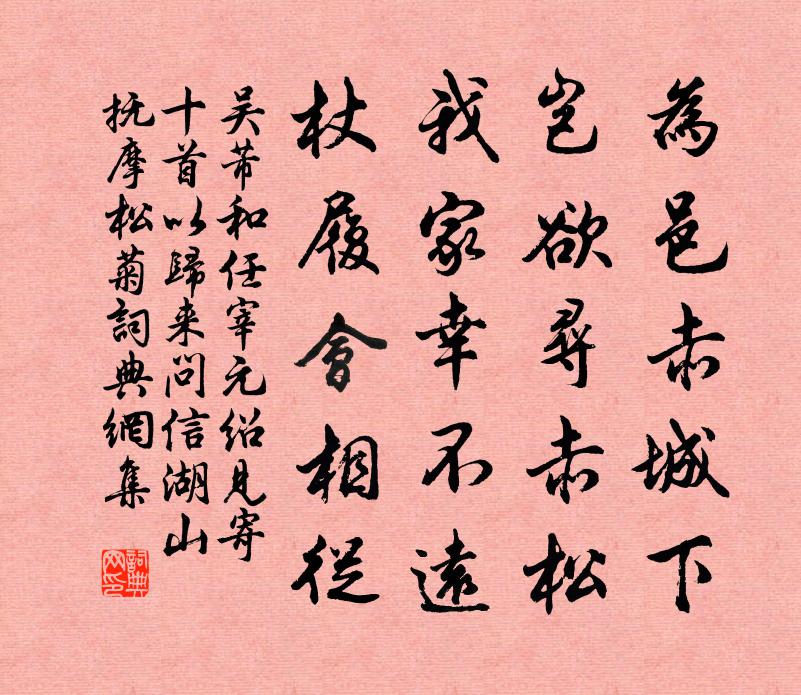 為邑赤城下
豈欲尋赤松
我家幸不遠
杖履會相從
吳芾和任宰元紹見寄
十首以歸来問信湖山
抚摩松菊詞典網集
詞典網印